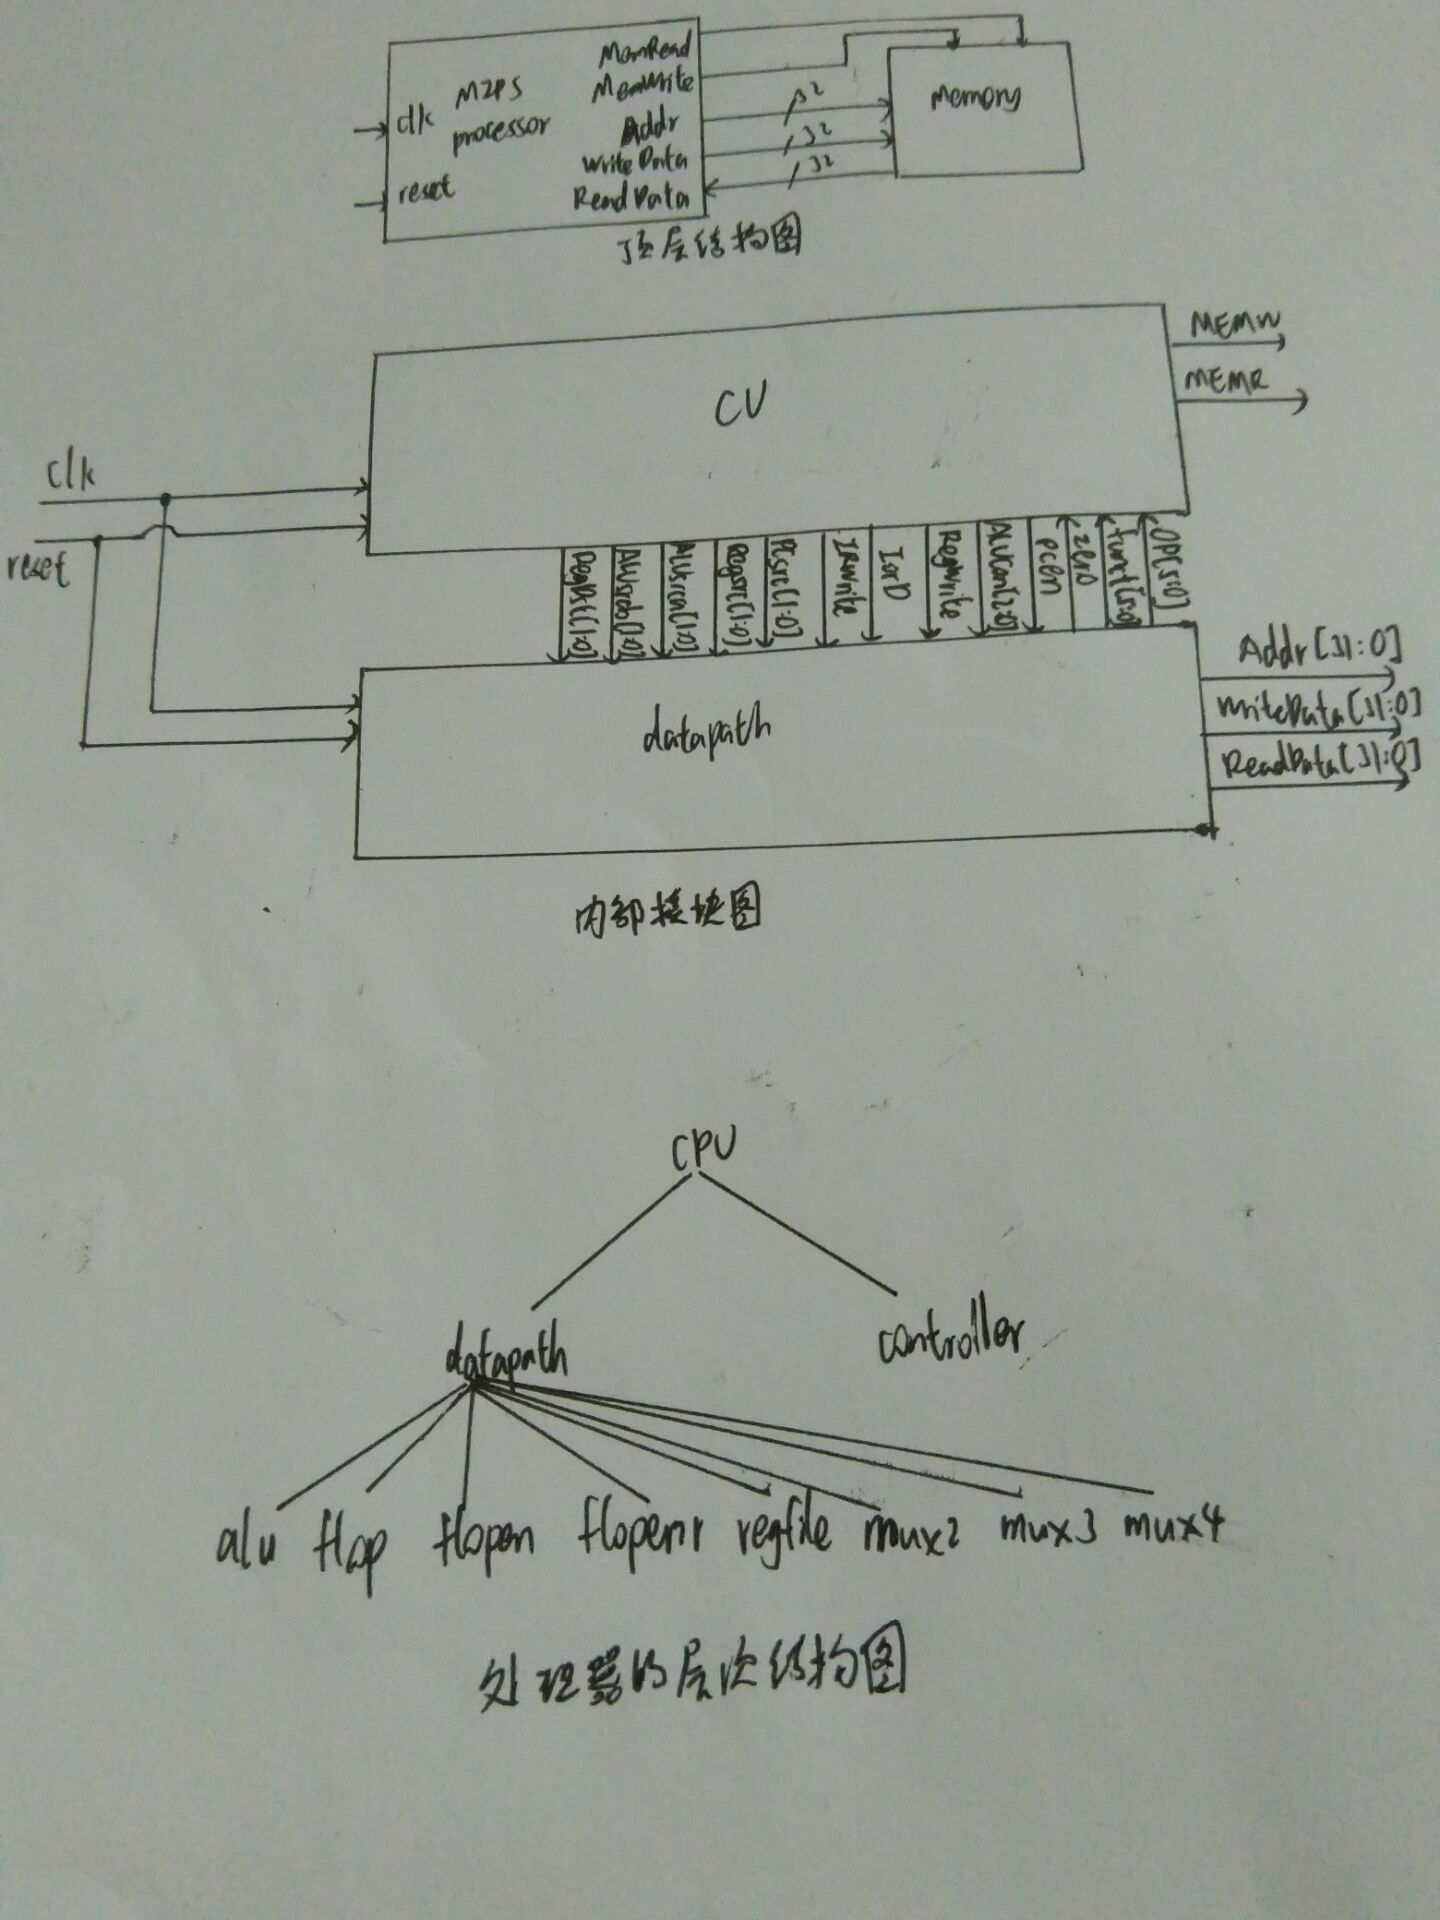 MemRead
MIPS
MemWrite
clk
processor
Addr
WriteData
reset
ReadData
32
32
32
Memory
顶层结构图
MEMW
MEMR
CU
clk
reset
RegDst[1:0]
ALUsrcb[1:0]
ALUsrca[1:0]
Regsrc[1:0]
PCsrc[1:0]
IRWrite
IorD
RegWrite
ALUCon[2:0]
PCEn
zero
funct[5:0]
OP[5:0]
Addr[31:0]
WriteData[31:0]
ReadData[31:0]
datapath
内部模块图
CPU
datapath
controller
alu flop flopen flopenr regfile mux2 mux3 mux4
处理器的层次结构图